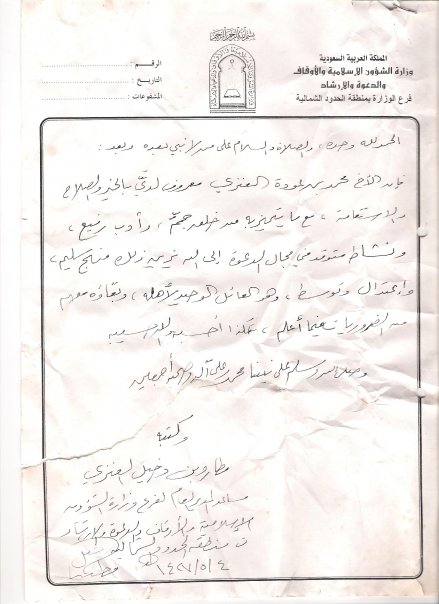 المملكة العربية السعودية
وزارة الشؤون الإسلامية والأوقاف
والدعوة والإرشاد
فرع الوزارة بمنطقة الحدود الشمالية
الرقم :
التاريخ :
المشفوعات :
الحمد لله وحده ، والصلاة والسلام على من لا نبي بعده وبعد :
فإن الأخ محمد بن عودة العنزي معروف لديَّ بالخير والصلاح
والاستقامة ، مع ما يتميز به من خلق جمٍّ ، وأدب رفيع ،
ونشاط متوقد في مجال الدعوة إلى الله يزين ذلك منهج سليم ،
واعتدال وتوسط ، وهو العائل الوحيد لأهله ، وبقاؤه معهم
من الضروريات فيما أعلم ، هكذا أحسبه والله حسيبه
وصلى الله وسلم على نبينا محمد وعلى آله وصحبه أجمعين
وكتبه
بن دخيل العنزي
مساعد المدير العام لفرع وزارة الشؤون
الإسلامية والأوقاف والدعوة والإرشاد
منطقة الحدود الشمالية
١٤٢٧/٥/٤